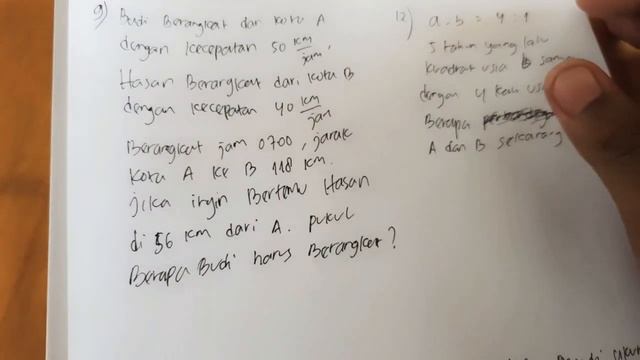 9) Budi Berangkat dari kota A
dengan kecepatan 50 km/jam,
Hasan Berangkat dari kota B
dengan kecepatan 40 km/jam
Berangkat jam 0700, jarak
kota A ke B 118 km.
jika ingin Bertemu Hasan
di 56 km dari A. pukul
Berapa Budi harus Berangkat?
12) a : b = 4 : 1
5 tahun yang lalu
kuadrat usia b sama
dengan 4 kali usia
Berapa
A dan B sekarang